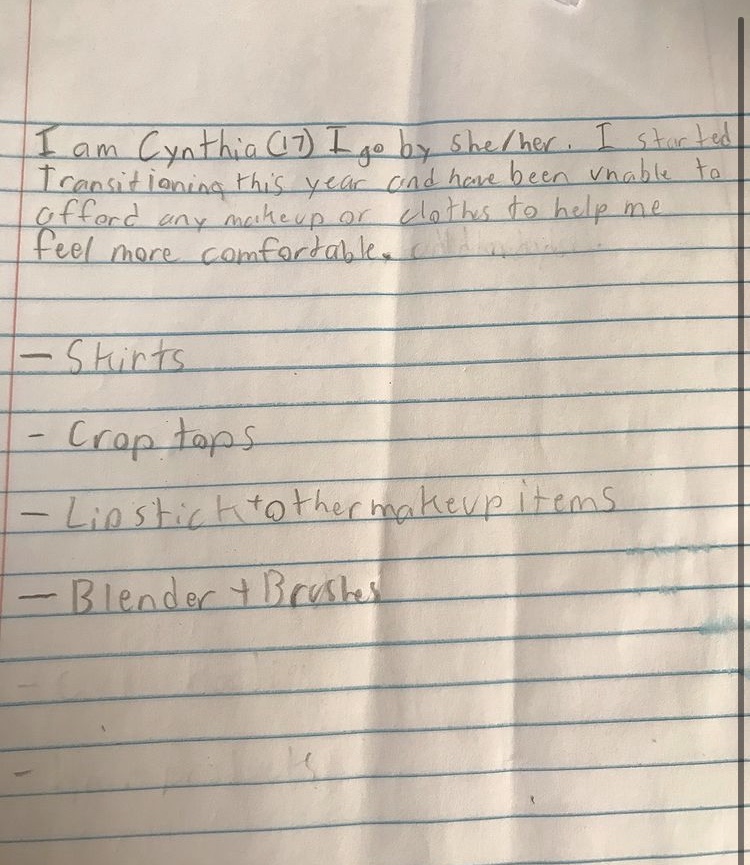 I am Cynthia (17) I go by she/her. I started
Transitioning this year and have been unable to
afford any makeup or clothes to help me
feel more comfortable.
- Skirts
- Crop tops
- Lipstick + other makeup items
- Blender + Brushes